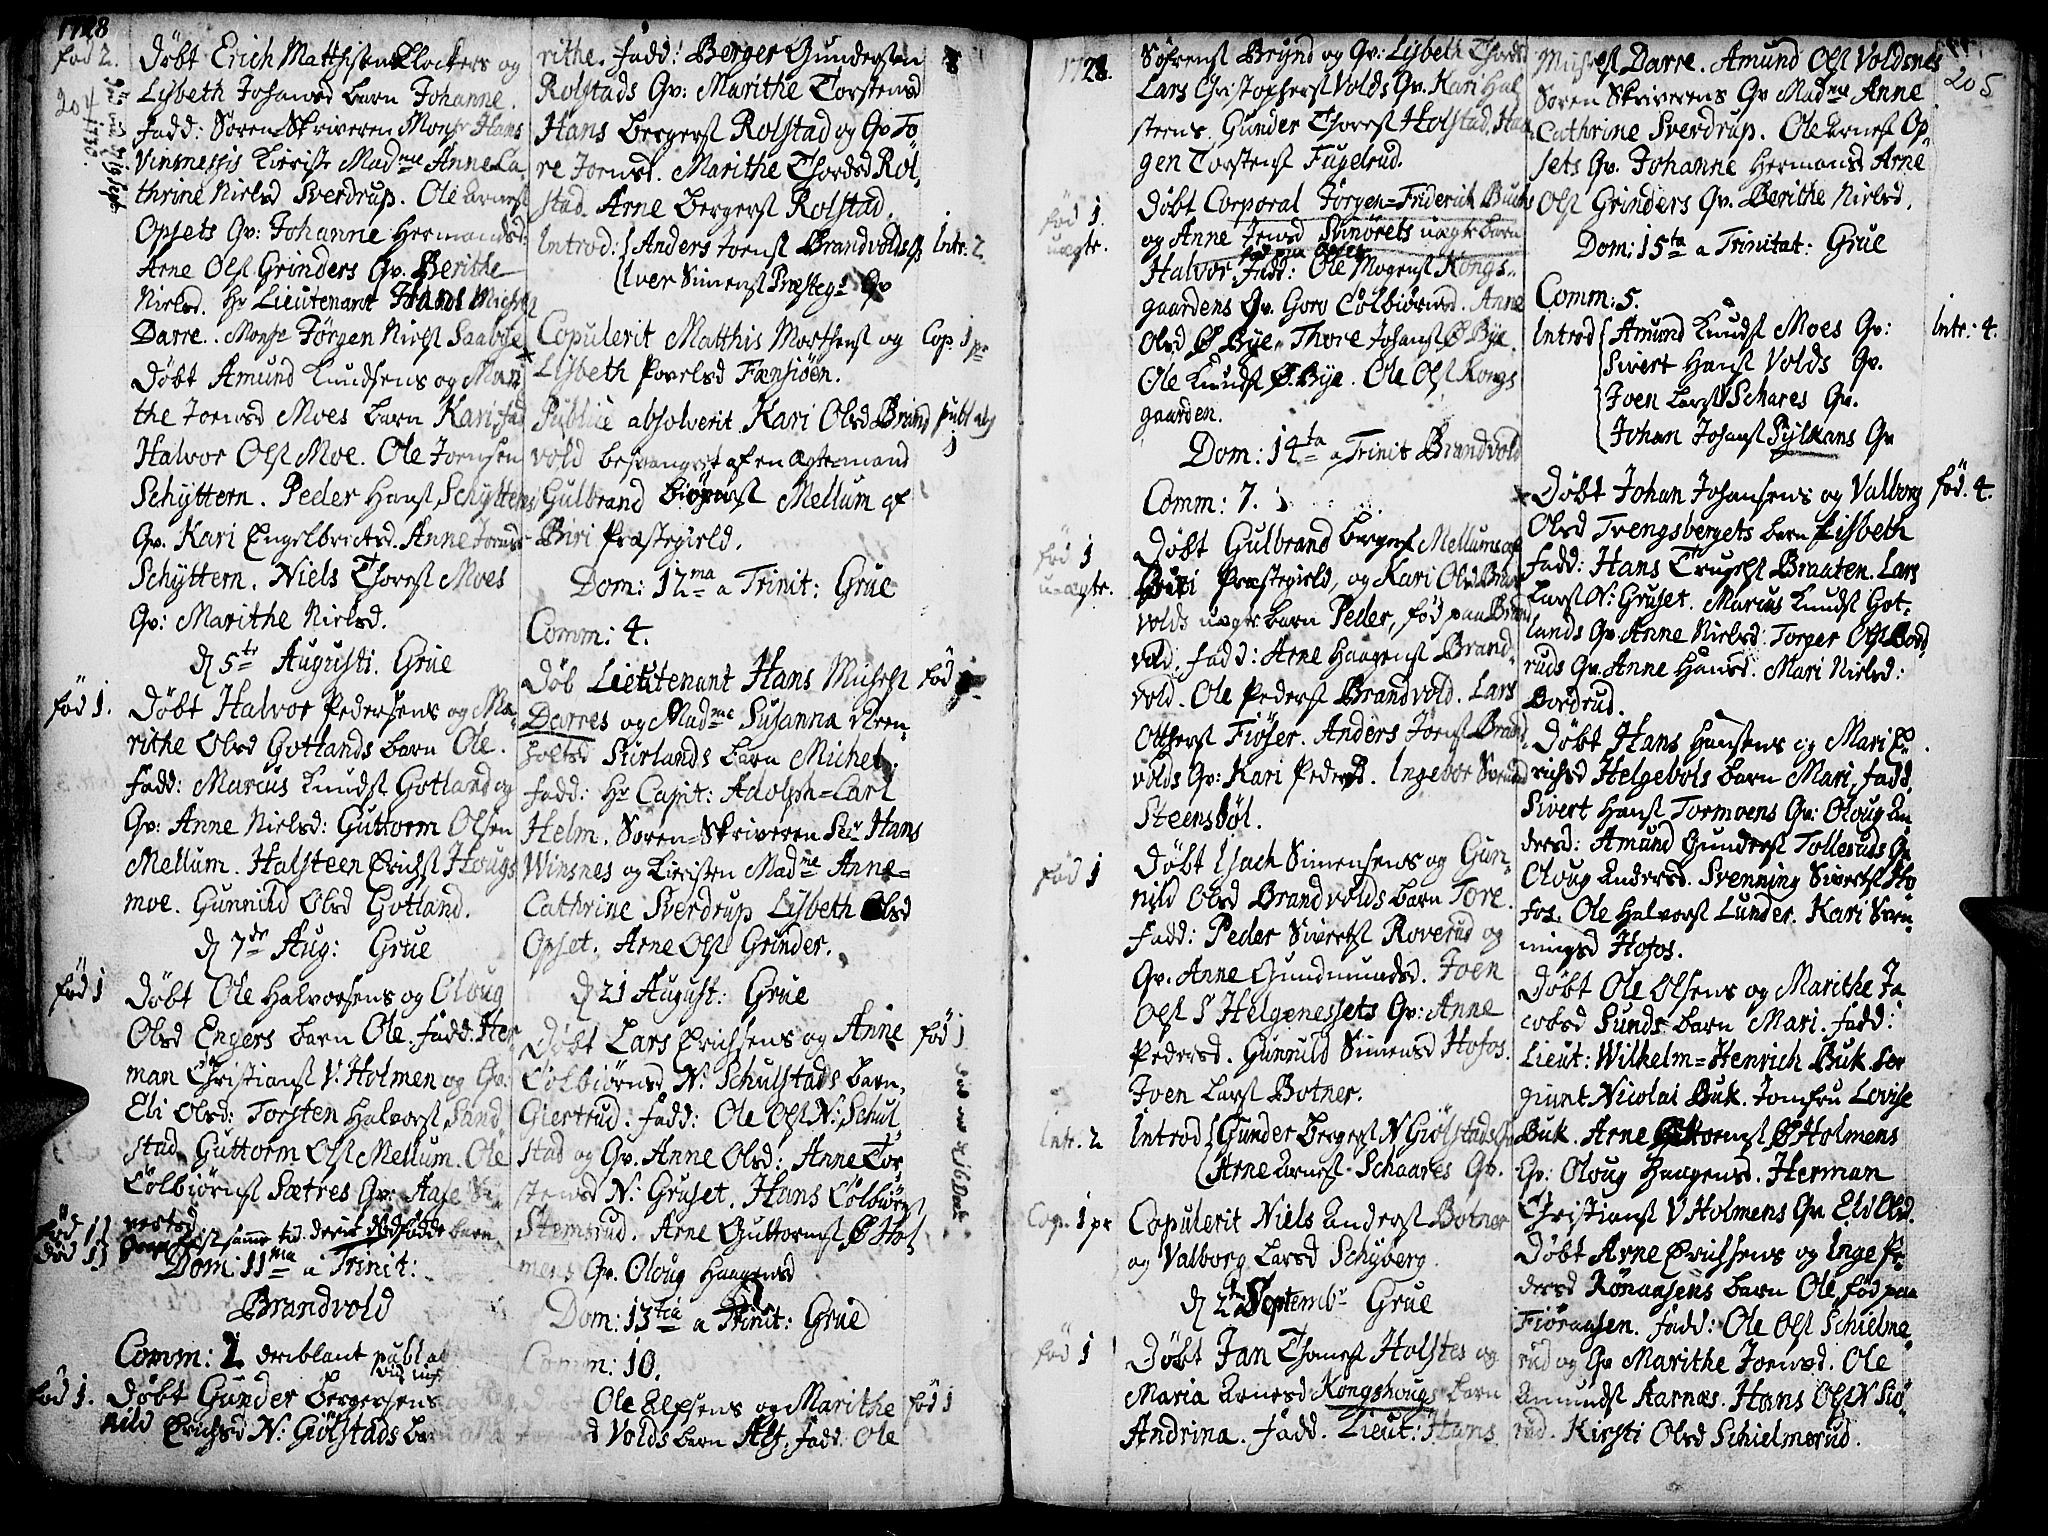 1728
204
föd 2.
Döbt Erich Matthisen Klockers og
Lisbeth Johansd barn Johanne.
Fadd: Soren-Skriveren Monsr Hans
Vinsnessis Kieriste Madme Anne Ca-
thrine Nielsd Sverdrup. Ole Arnest
Opsets Qv: Johanne Hermansd:
Arne Olst Grinders Qv. Berithe
Nielsd. Hr Lieutenant Hans Michelst
Darre. Monsr Jörgen Nielst Saabye
Döbt Amund Knudsens og Mari-
the Joensd Moes barn Kari, fad
Halvor Olst Moe. Ole Joensen
Schyttern. Peder Hanst Schyttern
Qv. Kari Engelbrictsd. Anne Joensd
Schyttern. Niels Thorest Moes
Qv: Marithe Nielsd.
D 5te Augusti. Grue
föd 1.
Döbt Halvor Pedersens og Ma-
rithe Olsd Gotlands barn Ole.
Fadd: Marcus Knudst Gotland og
Qv: Anne Nielsd: Guttorm Olsen
Mellum. Halsteen Erichst Hougs
moe. Gunnild Olsd Gotland.
D 7de Aug: Grue
föd 1
Döbt Ole Halvorsens og Oloug
Olsd Engers barn Ole. Fadd. Her
man Christianst V: Holmen og Qv:
Eli Olsd: Torsten Halvorst Sand
stad. Guttorm Olst Mellum. Ole
Cölbiörnst Sætres Qv: Aase
föd 1
död 1
samme tid deris dödfödde barn
Dom: 11ma a Trinit:
Brandvold
Comm: 2 deriblant publ ab
föd 1.
Döbt Gunder Bergersens
nild Erichsd N: Giölstads barn
rithe. Fadd: Berger Gundersen
Rolstads Qv: Marithe Torstensd
Hans Bergerst Rolstad og Qv To-
re Joensd. Marithe Thordsd Rol-
stad. Arne Bergerst Rolstad.
Introd: Anders Joenst Brandvolds Qv
Iver Simenst Præsteg: Qv
Intr: 2
Copulerit Matthis Morthenst og
Lisbeth Povelsd Fænsiöen.
Cop. 1 pr
Publice absolverit Kari Olsd Brand
vold besvangret af en ægtemand
Gulbrand Biörnst Mellum af
Biri Præstegield.
publ abs
1
Dom: 12ma a Trinit: Grue
Comm: 4.
Döb Lieutenant Hans Michelst
Darres og Madme Susanna Reen-
holtsd Stirlands barn Michel.
Fadd: Hr Capit: Adolph-Carl
Helm. Soren-Skriveren Sr Hans
Winsnes og Kieristen Madme Anne-
Cathrine Sverdrup Lisbeth Olsd
Opset. Arne Olst Grinder.
föd
D 21 August: Grue
Döbt Lars Erichsens og Anne
Cölbiörnsd N: Schulstads barn
Giertrud. Fadd: Ole Olst N: Schul
stad og Qv. Anne Olsd: Anne Tor
stensd N: Gruset. Hans Cölbiörnst
Stemsrud. Arne Guttormst Ø Hol
mens Qv. Oloug Haagensd
föd 1
Dom: 13tia a Trinit: Grue
Comm: 10.
Ole Elefsens og Marithe
Volds barn Alf, fadd. Ole
föd 1
1728.
Söfrenst Brynd og Qv: Lisbeth Thordsd
Lars Christopherst Volds Qv. Kari Hal
steens. Gunder Thorest Holstad, Haa
gen Torstenst Fugelrud.
föd 1
uægte.
Döbt Corporal Jörgen-Friderich Buchs
og Anne Jensd Svinörets uægte barn
Halvor. Fadd: Ole Mogenst Kongs-
gaardens Qv. Goro Cölbiörnsd. Anne
Olsd Ø Bye. Thore Johanst Ø Bye.
Ole Knudst Ø. Bye. Ole Olst Kongs
gaarden.
Dom: 14ta a Trinit Brandvold
Comm: 7.
föd 1
u-ægte.
Döbt Gulbrand Bergerst Mellums af
Biri Præstegield, og Kari Olsd Brand
volds uægte barn Peder, föd paa Brand
vold. Fadd: Arne Haagenst Brand-
vold. Ole Pederst Brandvold. Lars
Ottherst Fiöser. Anders Joenst Brand
volds Qv: Kari Pedersd. Ingebor
Steensböl.
föd 1
Döbt Isach Simensens og Gun-
nild Olsd Brandvolds barn Tore.
Fadd: Peder Sivertst Roverud og
Qv. Anne Gundmundsd. Joen
Olst S Helgenessets Qv: Anne
Pedersd. Gunnild Simensd Hofos.
Joen Larst Botner.
Intr. 2
Introd Gunder Bergerst N Giölstads Qv
Arne Arnest Schaares Qv.
Cop. 1 pr
Copulerit Niels Anderst Botner
og Valborg Larsd Schyberg.
D 2den Septembr Grue
föd 1
Döbt Jan Thomest Holstes og
Maria Arnesd Kongshougs barn
Andrina. Fadd. Lieut: Hans
205
Michelst Darre. Amund Olst Voldsnes
Soren Skriverens Qv Madme Anne
Cathrine Sverdrup. Ole Arnest Op-
sets Qv. Johanne Hermansd Arne
Olst Grinders Qv. Berithe Nielsd.
Dom: 15ta a Trinitat: Grue
Comm: 5.
Introd Amund Knudst Moes Qv:
Sivert Hanst Volds Qv.
Joen Larst Schares Qv.
Johan Johanst Sylkans Qv
Intr: 4.
Döbt Johan Johansens og Valborg
Olsd Trengsbergets barn Lisbeth
Fadd: Hans Trugelst Braaten. Lars
Larst N: Gruset. Marcus Knudst Got-
lands Qv. Anne Nielsd. Torger Olst Bord
ruds Qv. Anne Hansd. Mari Nielsd:
Bordrud.
föd. 4.
Döbt Hans Hansens og Mari E-
richsd Helgebols barn Mari, fadd.
Sivert Hanst Tormoens Qv: Oloug An-
dersd: Amund Gunderst Tollesruds Qv
Oloug Andersd. Svenning Sivertst Ho
fos. Ole Halvorst Lunder. Kari Sven
ningsd Hofos.
Döbt Ole Olsens og Marithe Ja
cobsd Sunds barn Mari. Fadd:
Lieut: Wilhelm-Henrich Buk Ser
giant Nicolai Buk. Jomfru Lovise
Buk. Arne Guttormst Ø Holmens
Qv: Oloug Haagensd. Herman
Christianst V Holmens Qv Eli Olsd.
Döbt Arne Erichsens og Inge Pe-
dersd Rönaasens barn Ole, föd paa
Fiöraasen. Fadd: Ole Olst Schielme-
rud og Qv Marithe Joensd. Ole
Amundst Aarnæs. Hans Olst N Siö
rud. Kirsti Olsd Schielmerud.